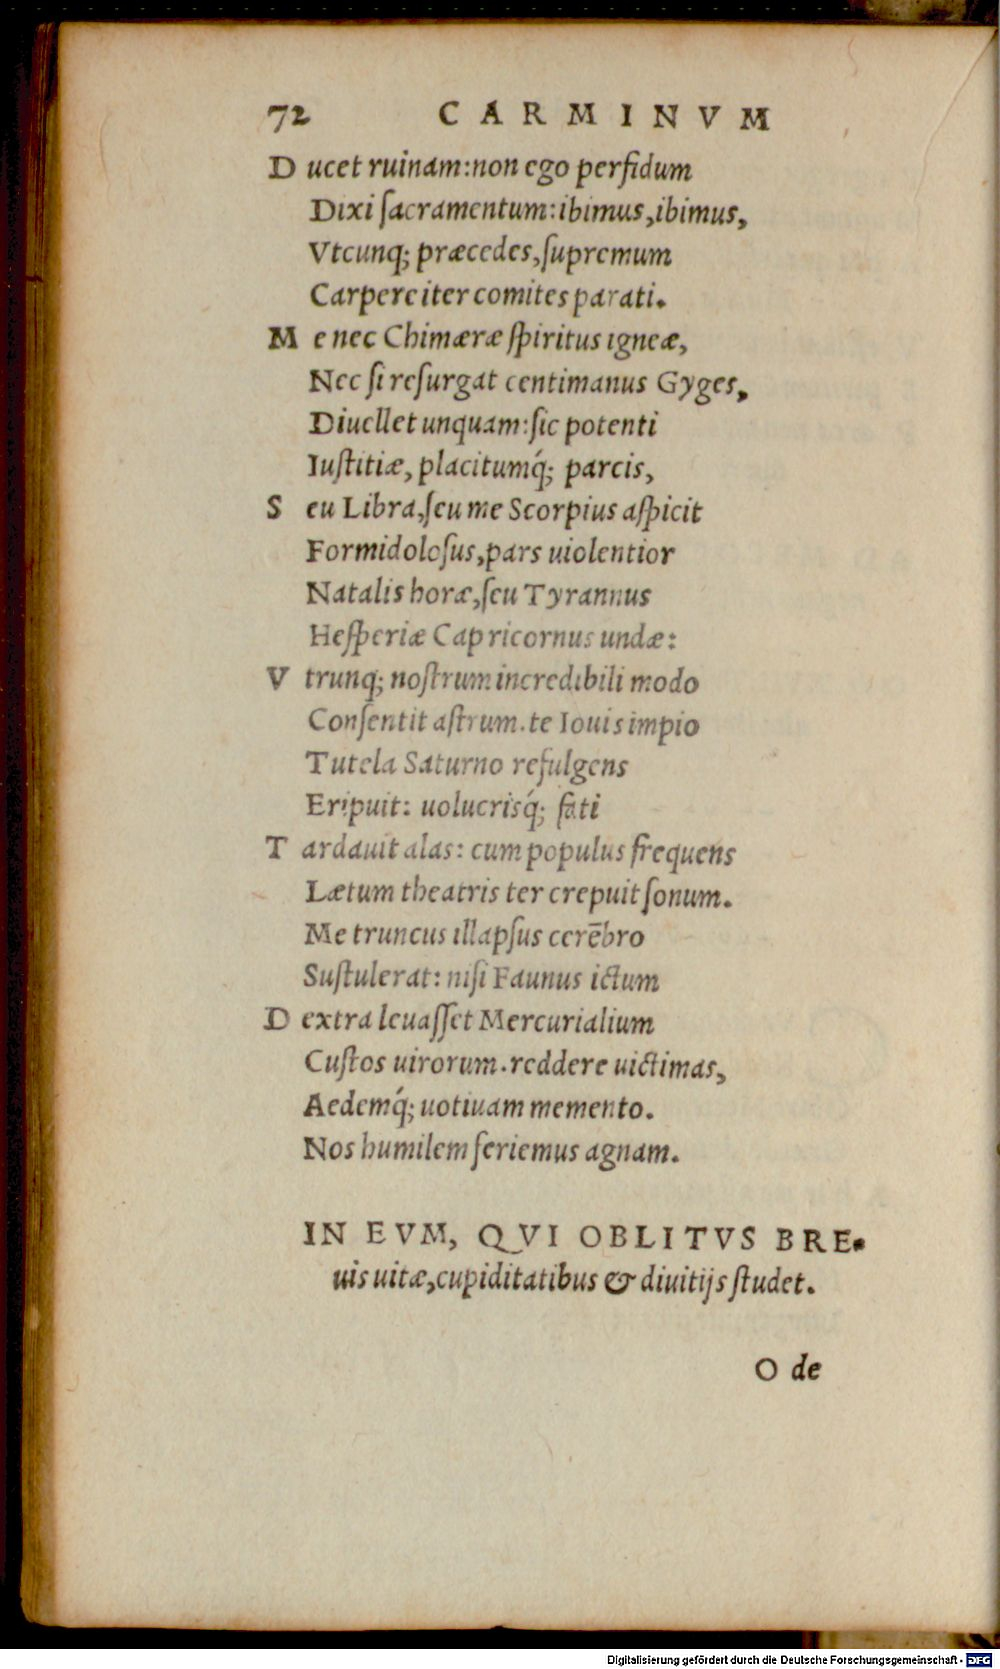 72 CARMINVM
D ucet ruinam: non ego perfidum
Dixi ſacramentum: ibimus, ibimus,
Vtcunq; præcedes, ſupremum
Carpere iter comites parati.
M e nec Chimæræ ſpiritus igneæ,
Nec ſi reſurgat centimanus Gyges,
Diuellet unquam: ſic potenti
Iuſtitiæ, placitumq́; parcis,
S eu Libra, ſeu me Scorpius aſpicit
Formidoloſus, pars uiolentior
Natalis horæ, ſeu Tyrannus
Heſperiæ Capricornus undæ:
V trunq; noſtrum incredibili modo
Conſentit aſtrum. te Iouis impio
Tutela Saturno refulgens
Eripuit: uolucrisq́; fati
T ardauit alas: cum populus frequens
Lætum theatris ter crepuit ſonum.
Me truncus illapſus cerēbro
Suſtulerat: niſi Faunus ictum
D extra leuaſſet Mercurialium
Cuſtos uirorum. reddere uictimas,
Aedemq́; uotiuam memento.
Nos humilem feriemus agnam.
IN EVM, QVI OBLITVS BRE-
uis uitæ, cupiditatibus & diuitijs ſtudet.
O de
Digitalisierung gefördert durch die Deutsche Forschungsgemeinschaft - DFG